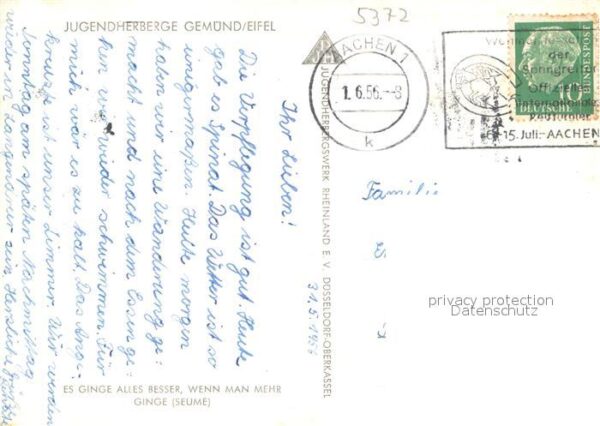 JUGENDHERBERGE GEMÜND/EIFEL
5372
Ihr Lieben!
Die Verpflegung ist gut. Heute
gab es Spinat. Das Wetter ist so
einigermaßen. Heute morgen
haben wir eine Wanderung ge-
macht und nach dem Essen ge-
hen wir wieder schwimmen. Für
mich war es zu kalt. Das Ange-
kreuzte ist unser Zimmer. Wir werden
Sonntag am späten Nachmittag
wieder in sein. Herzliche Grüße
31.5.1956
ES GINGE ALLES BESSER, WENN MAN MEHR
GINGE (SEUME)
JUGENDHERBERGSWERK RHEINLAND E. V. DÜSSELDORF-OBERKASSEL
AACHEN 1
1.6.56.-8
k
der
Offizielles
Internationales
Reitturnier
-15. Juli-AACHEN
10
BUNDESPOST
Familie
E
privacy protection
Datenschutz